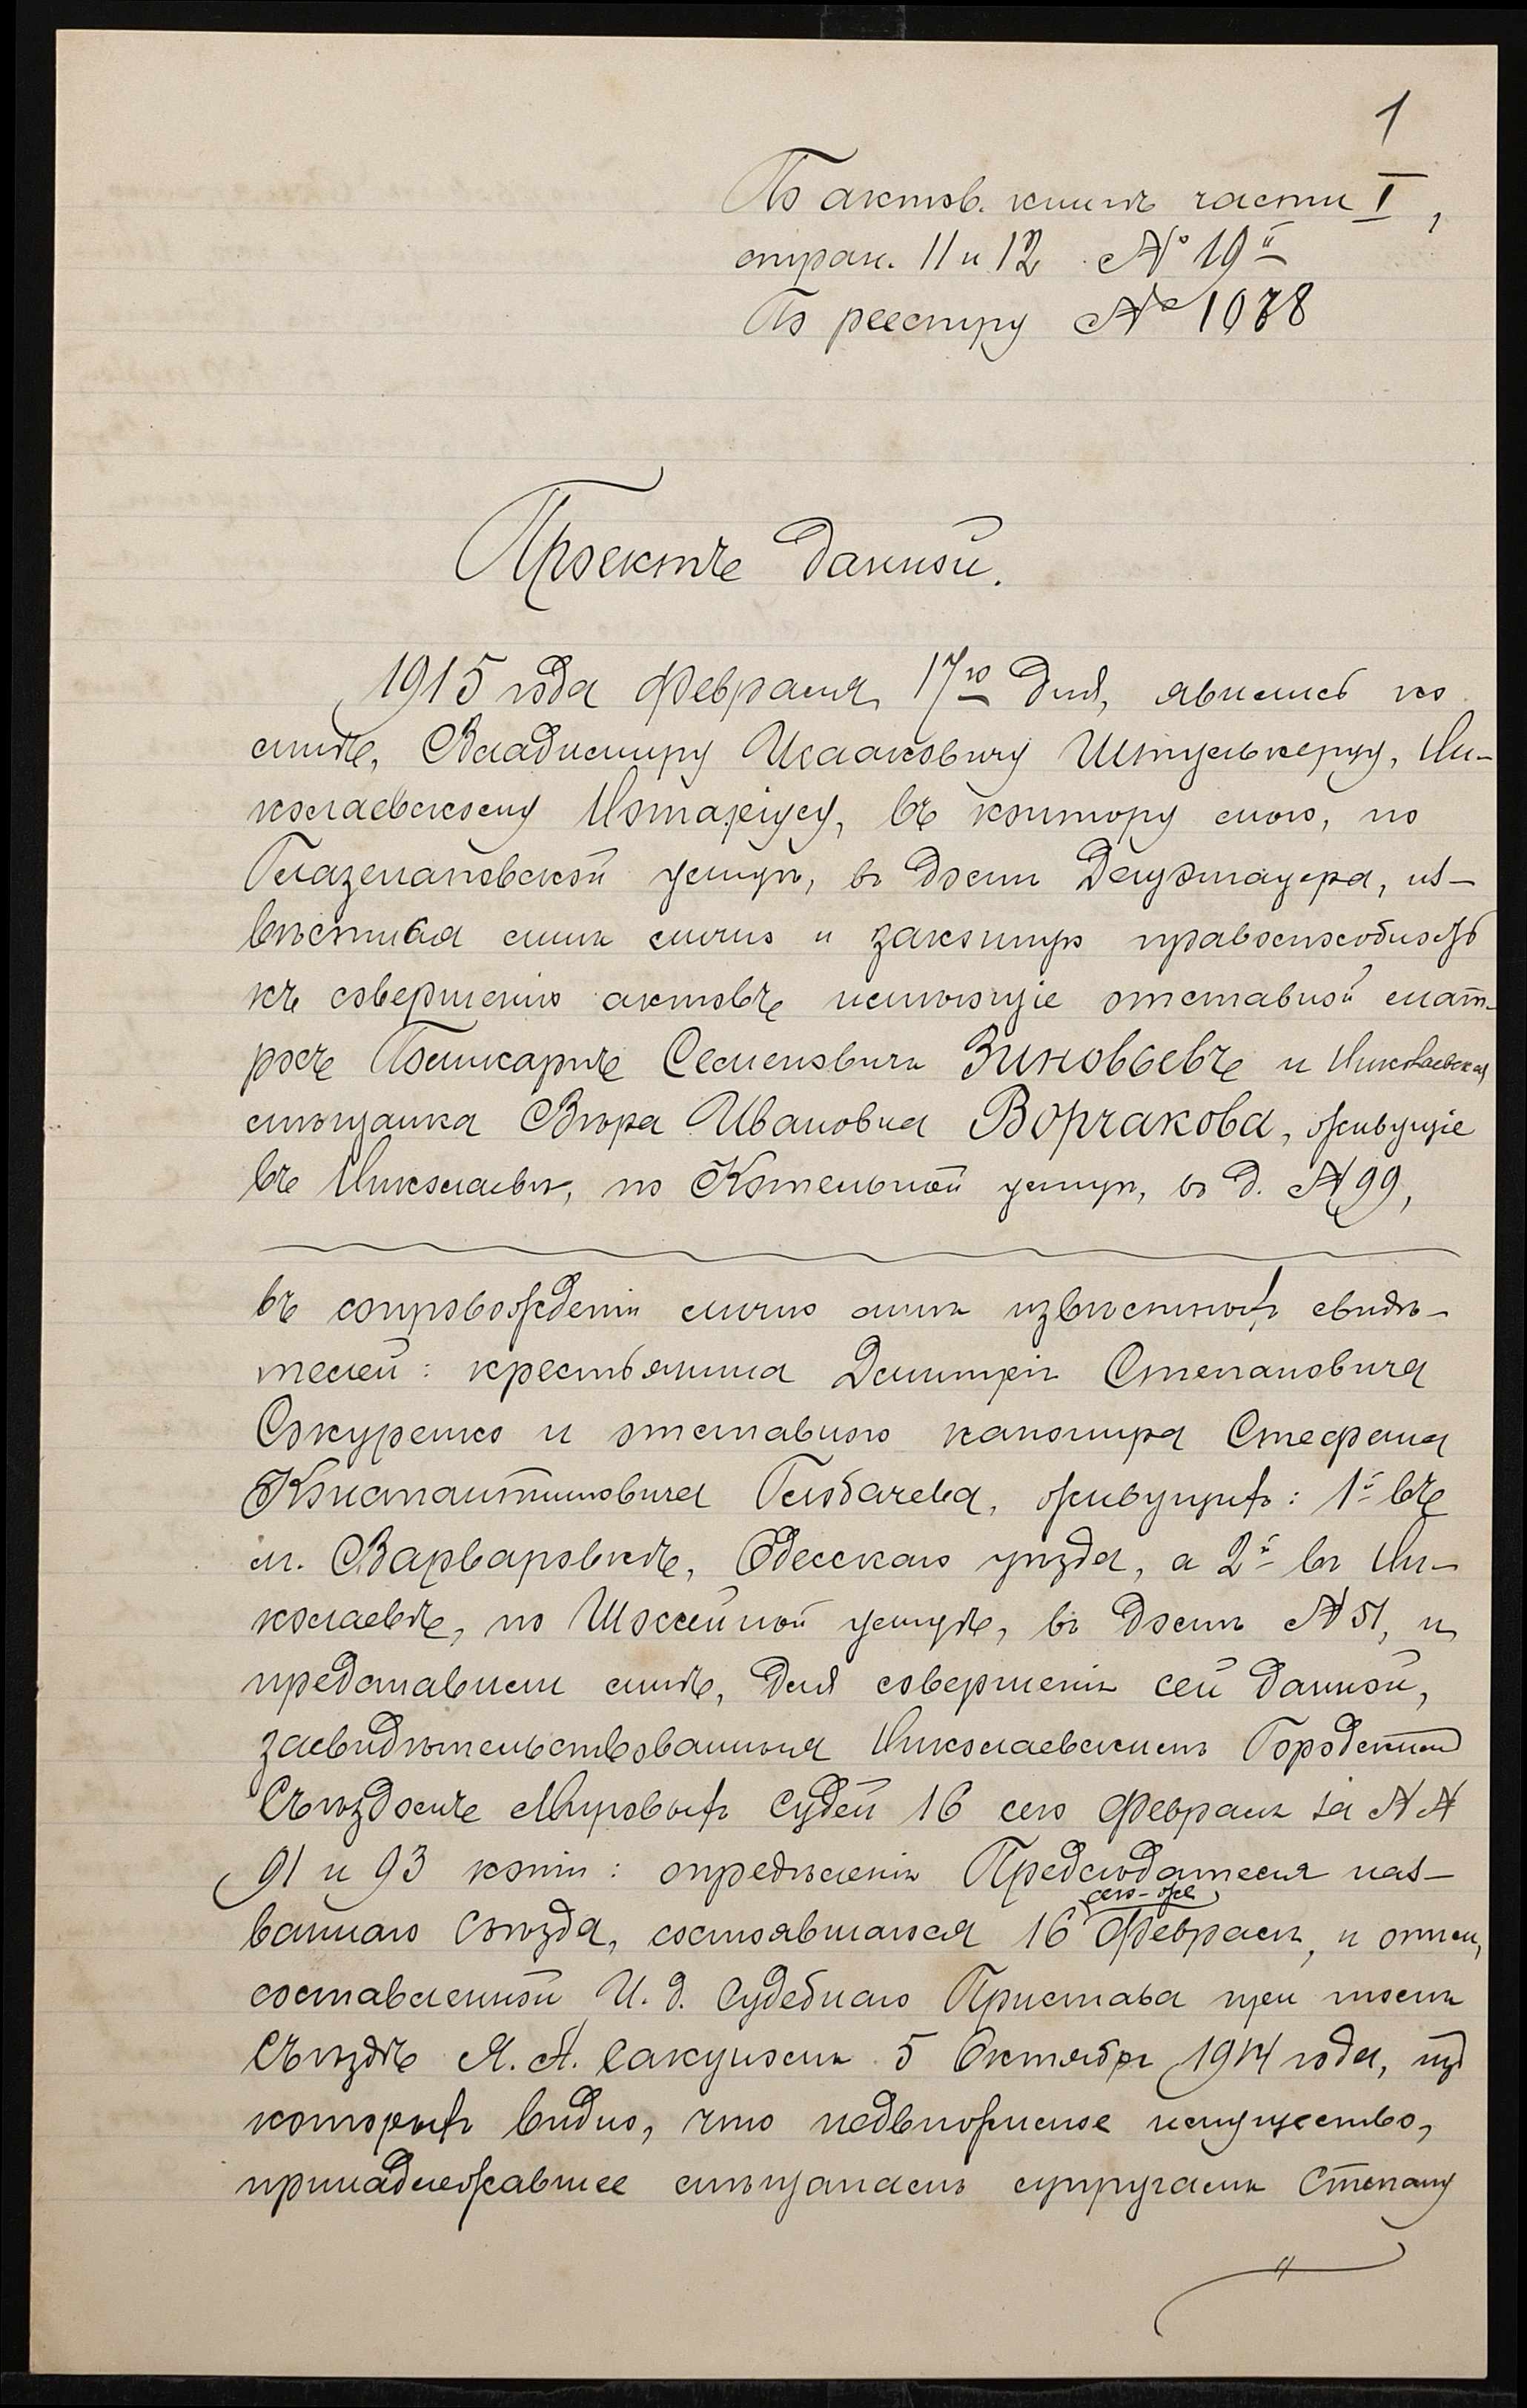 1
По актов. книгѣ части I,
стран. 11 и 12 № 19й
По реестру № 1078
Проектъ данной.
1915 года февраля 17го дня, явились ко
мнѣ, Владимиру Исааковичу Штулькерцу, Ни-
колаевскому Нотаріусу, въ контору мою, по
Глазенаповской улицѣ, въ домѣ Даумзауера, из-
вѣстная мнѣ лично и законную правоспособность
къ совершенію актовъ имѣющіе отставной мат-
росъ Поликарпъ Семеновичъ Зиновьевъ и Николаевская
мѣщанка Вѣра Ивановна Ворчакова, живущіе
въ Николаевѣ, по Котельной улицѣ, въ д. № 99,
въ сопровожденіи лично мнѣ извѣстныхъ свидѣ-
телей: крестьянина Димитрія Степановича
Сжуренко и отставного канонира Стефана
Константиновича Глобачева, живущихъ: 1й въ
м. Варваровкѣ, Одесскаго уѣзда, а 2й въ Ни-
колаевѣ, по Шоссейной улицѣ, въ домѣ № 51, и
представили мнѣ, для совершенія сей данной,
засвидѣтельствованныя Николаевскимъ Городскимъ
Съѣздомъ Мировыхъ Судей 16 сего февраля за №№
91 и 93 копіи: опредѣленія Предсѣдателя наз-
ваннаго Съѣзда, состоявшагося 16 сего-же февраля, и описи,
составленной И. д. Судебнаго Пристава при томъ
Съѣздѣ Я. А. Сакуномъ 5 Октября 1914 года, изъ
которыхъ видно, что недвижимое имущество,
принадлежавшее мѣщанамъ супругамъ Степану